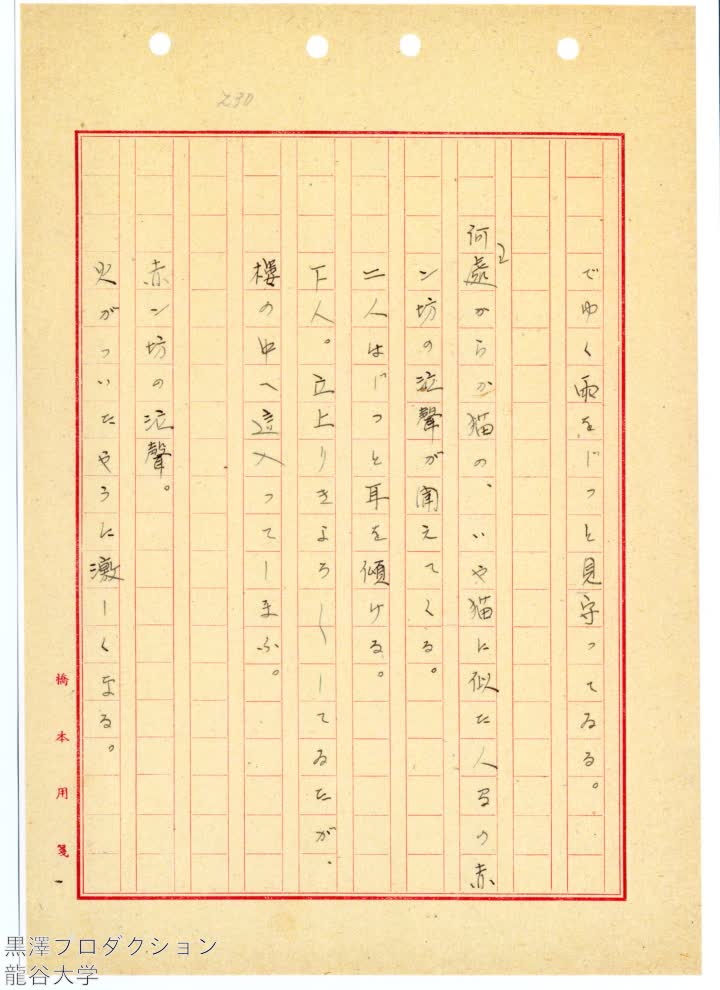 230
でゆく雨をじつと見守つてゐる。
何處からか猫の、いや猫に似た人間の赤
ン坊の泣聲が聞えてくる。
二人はじつと耳を傾ける。
下人。立上りきよろ〱してゐたが、
樓の中へ這入つてしまふ。
赤ン坊の泣聲。
火がついたやうに激しくなる。
橋本用箋
黒澤プロダクション
龍谷大学